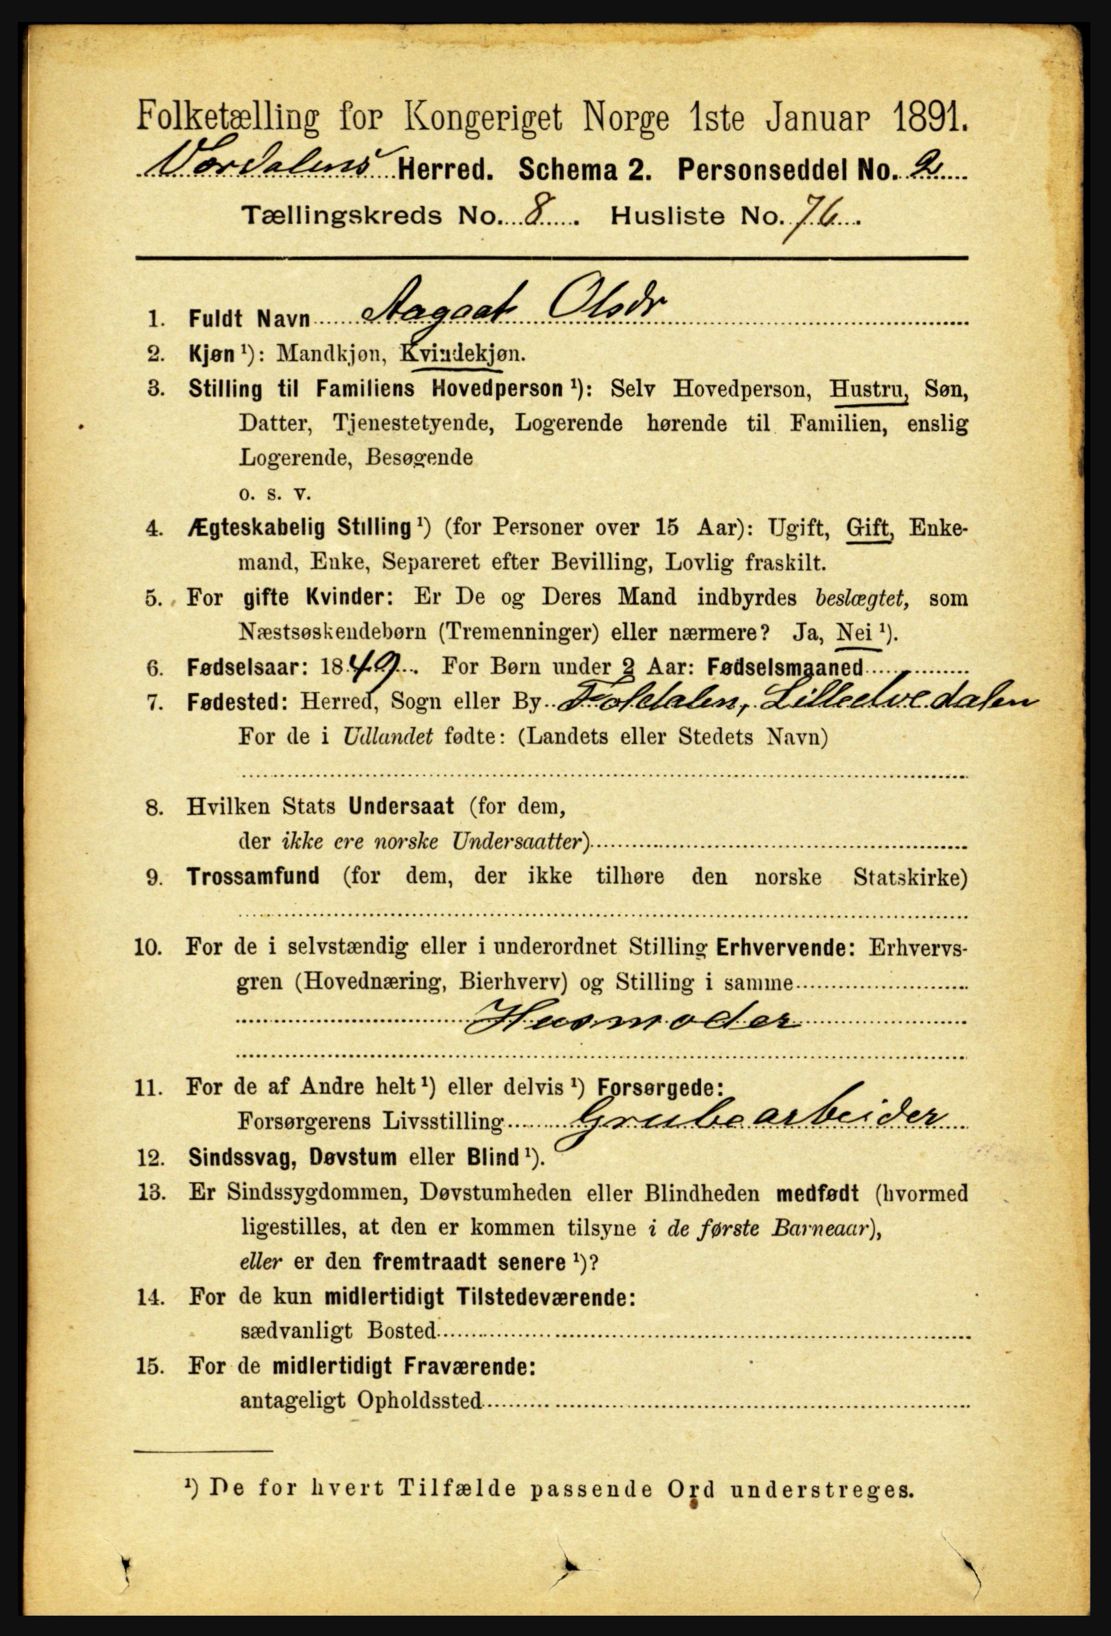 Folketælling for Kongeriget Norge 1ste Januar 1891.
Værdalens Herred. Schema 2. Personseddel No. 2
Tællingskreds No. 8. Husliste No. 76.
1. Fuldt Navn Aagaat Olsdr
2. Kjøn ¹): Mandkjøn, Kvindekjøn.
3. Stilling til Familiens Hovedperson ¹): Selv Hovedperson, Hustru, Søn,
Datter, Tjenestetyende, Logerende hørende til Familien, enslig
Logerende, Besøgende
o. s. v.
4. Ægteskabelig Stilling ¹) (for Personer over 15 Aar): Ugift, Gift, Enke-
mand, Enke, Separeret efter Bevilling, Lovlig fraskilt.
5. For gifte Kvinder: Er De og Deres Mand indbyrdes beslægtet, som
Næstsøskendebørn (Tremenninger) eller nærmere? Ja, Nei ¹).
6. Fødselsaar: 1849. For Børn under 2 Aar: Fødselsmaaned
7. Fødested: Herred, Sogn eller By Foldalen, Lilleelvedalen
For de i Udlandet fødte: (Landets eller Stedets Navn)
8. Hvilken Stats Undersaat (for dem,
der ikke ere norske Undersaatter)
9. Trossamfund (for dem, der ikke tilhøre den norske Statskirke)
10. For de i selvstændig eller i underordnet Stilling Erhvervende: Erhvervs-
gren (Hovednæring, Bierhverv) og Stilling i samme
Husmoder
11. For de af Andre helt ¹) eller delvis ¹) Forsørgede:
Forsørgerens Livsstilling Grubearbeider
12. Sindssvag, Døvstum eller Blind ¹).
13. Er Sindssygdommen, Døvstumheden eller Blindheden medfødt (hvormed
ligestilles, at den er kommen tilsyne i de første Barneaar),
eller er den fremtraadt senere ¹)?
14. For de kun midlertidigt Tilstedeværende:
sædvanligt Bosted
15. For de midlertidigt Fraværende:
antageligt Opholdssted
¹) De for hvert Tilfælde passende Ord understreges.